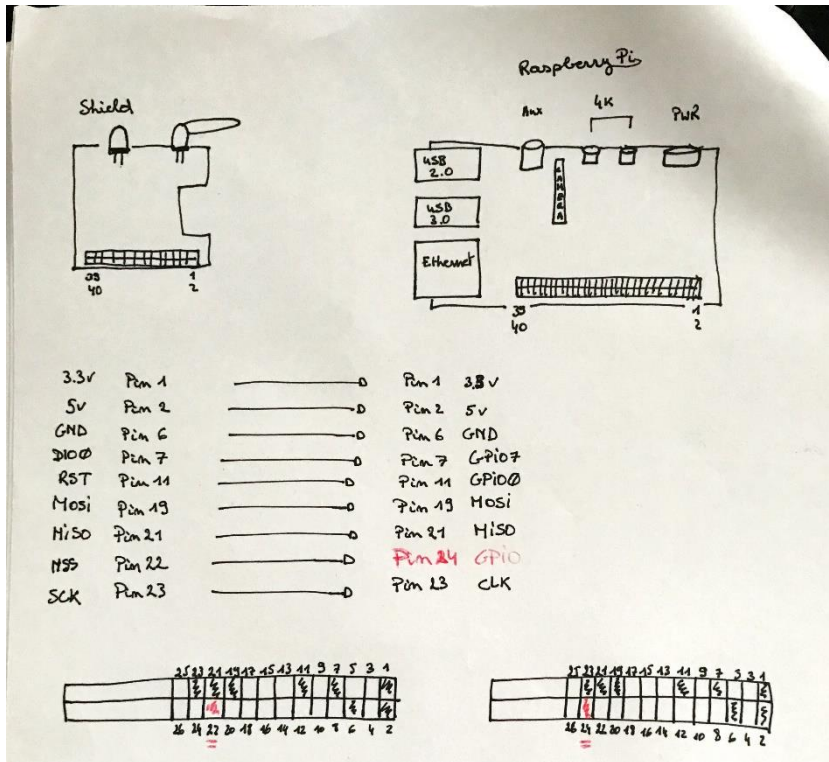 Raspberry Pi
Shield
Aux 4K PWR
USB 2.0
CAMERA
USB 3.0
Ethernet
39 1
40 2
39 1
40 2
3.3v Pin 1 Pin 1 3.3v
5v Pin 2 Pin 2 5v
GND Pin 6 Pin 6 GND
DIO0 Pin 7 Pin 7 GPiO7
RST Pin 11 Pin 11 GPiO0
Mosi Pin 19 Pin 19 Mosi
MiSO Pin 21 Pin 21 MiSO
NSS Pin 22 Pin 24 GPiO
SCK Pin 23 Pin 23 CLK
25 23 21 19 17 15 13 11 9 7 5 3 1
26 24 22 20 18 16 14 12 10 8 6 4 2
25 23 21 19 17 15 13 11 9 7 5 3 1
26 24 22 20 18 16 14 12 10 8 6 4 2